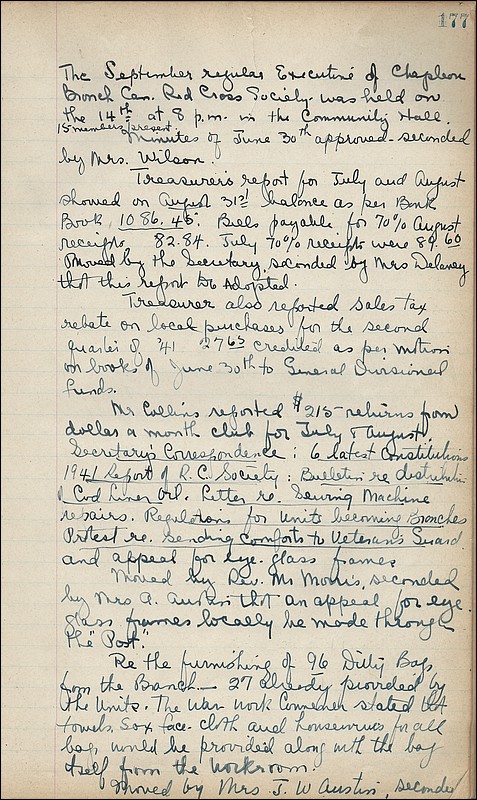 177
The September regular Executive of Chapleau
Branch Can. Red Cross Society was held on
the 14th at 8 p.m. in the Community Hall.
15 members present.
Minutes of June 30th approved - seconded
by Mrs. Wilson.
Treasurer's report for July and August
showed on August 31st balance as per Bank
Book, 1086.45. Bills payable for 70% August
receipts 82.84. July 70% receipts were 89.60
Moved by the Secretary, seconded by Mrs Delaney
that this report be adopted.
Treasurer also reported sales tax
rebate on local purchases for the second
quarter of '41 27.65 credited as per motion
on books of June 30th to General Divisional
funds.
Mr Collins reported $215 - returns from
dollar a month club for July & August.
Secretary's Correspondence: 6 latest Constitutions
1941 Report of R.C. Society: Bulletin re distribution
of Cod Liver Oil. Letter re. Sewing Machine
repairs. Regulations for Units becoming Branches
Protest re. Sending Comforts to Veterans Guard
and appeal for eye-glass frames
Moved by Rev. Mr Morris, seconded
by Mrs A. Austin that an appeal for eye-
glass frames locally be made through
the "Post".
Re the furnishing of 96 Ditty Bags
from the Branch - 27 already provided by
the Units. The War Work Convener stated that
towels, sox, face-cloth and housewives for all
bags would be provided along with the bag
itself from the workroom.
Moved by Mrs J. W Austin, seconded